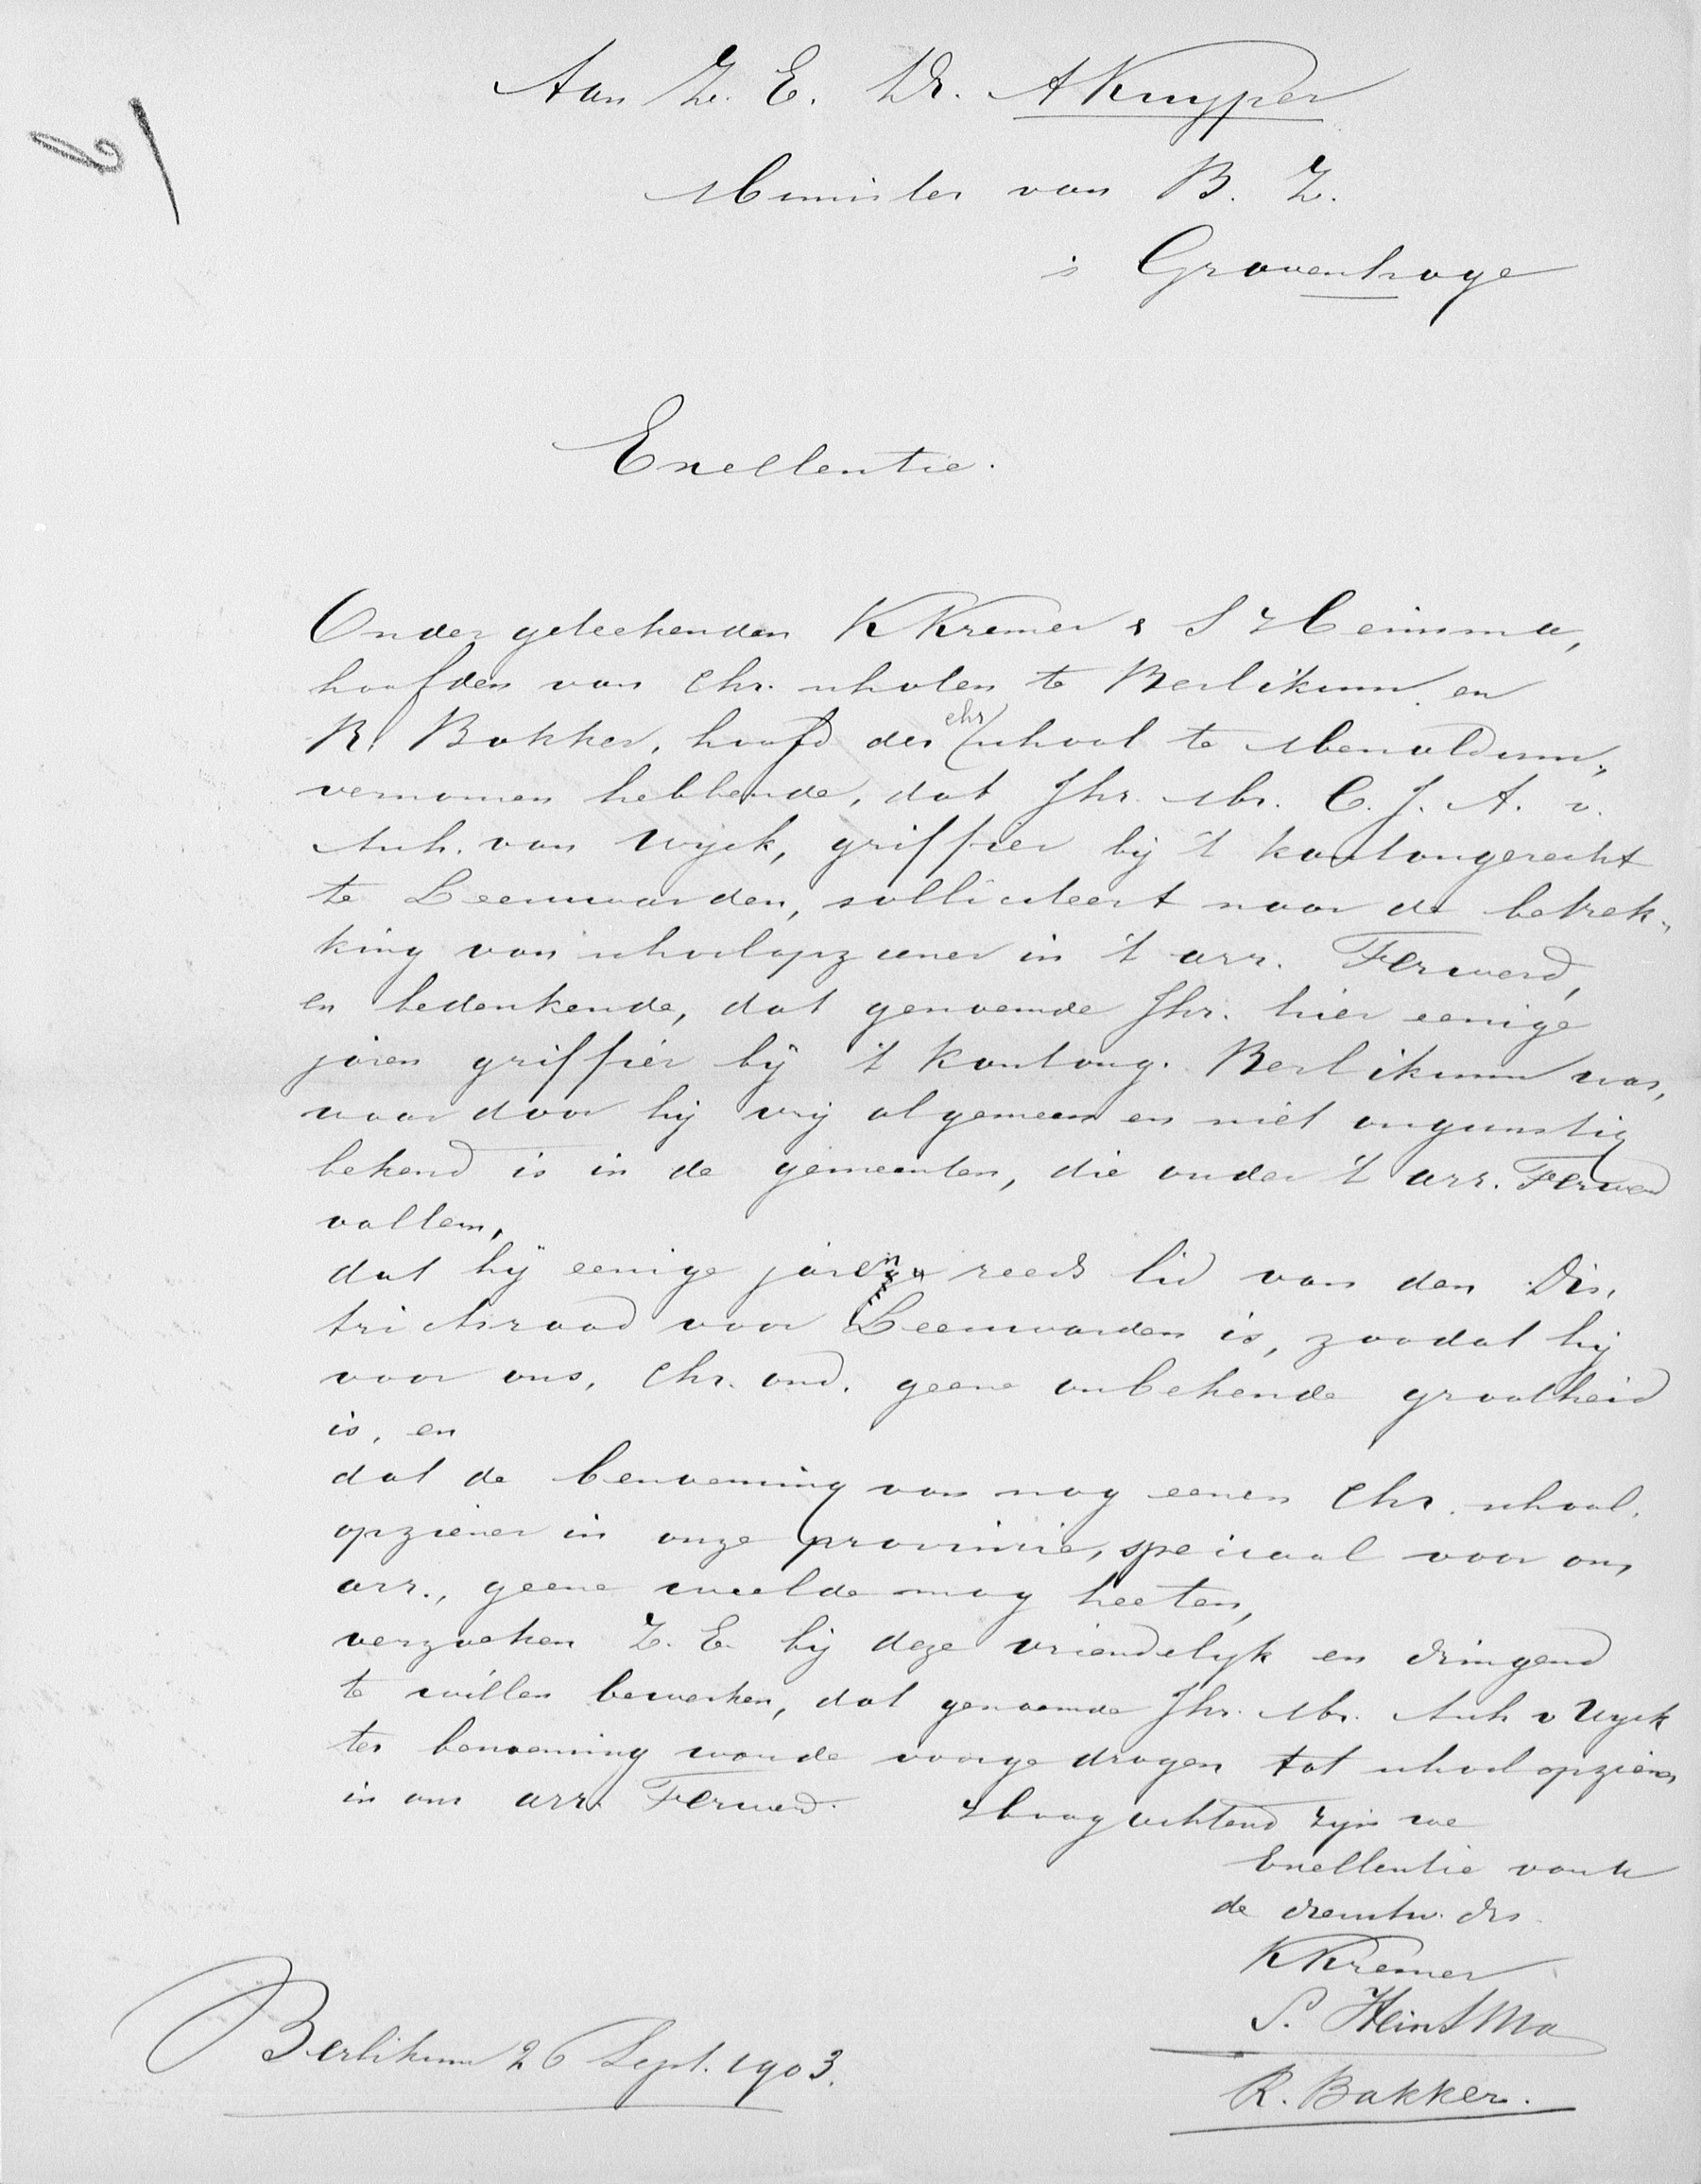 Aan Z. E. Dr. A Kuyper
Minister van B. Z.
's Gravenhage
Excellentie.
Ondergeteekenden K Kremer & S Heinsma,
hoofden van Chr. scholen te Berlikum en
R. Bakker, hoofd der chr school te Menaldum,
vernomen hebbende, dat Jhr. Mr. C. J. A. v.
Asch. van Wyck, griffier bij 't kantongerecht
te Leeuwarden, solliciteert naar de betrek-
king van schoolopziener in 't arr. Ferwerd,
en bedenkende, dat genoemde Jhr. hier eenige
jaren griffier bij 't Kantong. Berlikum was,
waardoor hij vrij algemeen en niet ongunstig
bekend is in de gemeenten, die onder 't arr. Ferwerd
vallen,
dat hij eenige jaren reeds lid van den Dis-
trictsraad voor Leeuwarden is, zoodat hij
voor ons, Chr. ond. geene onbekende grootheid
is, en
dat de benoeming van nog eenen Chr. school-
opziener in onze provincie, speciaal voor ons
arr., geene weelde mag heeten,
verzoeken Z. E. bij deze vriendelyk en dringend
te willen bewerken, dat genoemde Jhr. Mr. Asch v Wyck
ter benoeming worde voorgedragen tot schoolopziener
in ons arr. Ferwerd. Hoogachtend zijn we
Excellentie van U
de dienstw. drs.
K Kremer
S. Heinsma
R. Bakker.
Berlikum 26 Sept. 1903.